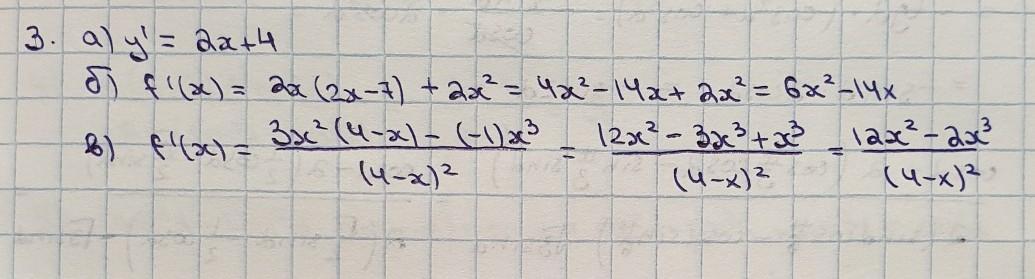 3. а) y' = 2x+4
б) f'(x) = 2x(2x-7) + 2x² = 4x²-14x+ 2x² = 6x²-14x
в) f'(x) = \frac{3x²(4-x) - (-1)x³}{(4-x)²} = \frac{12x² - 3x³ + x³}{(4-x)²} = \frac{12x² - 2x³}{(4-x)²}